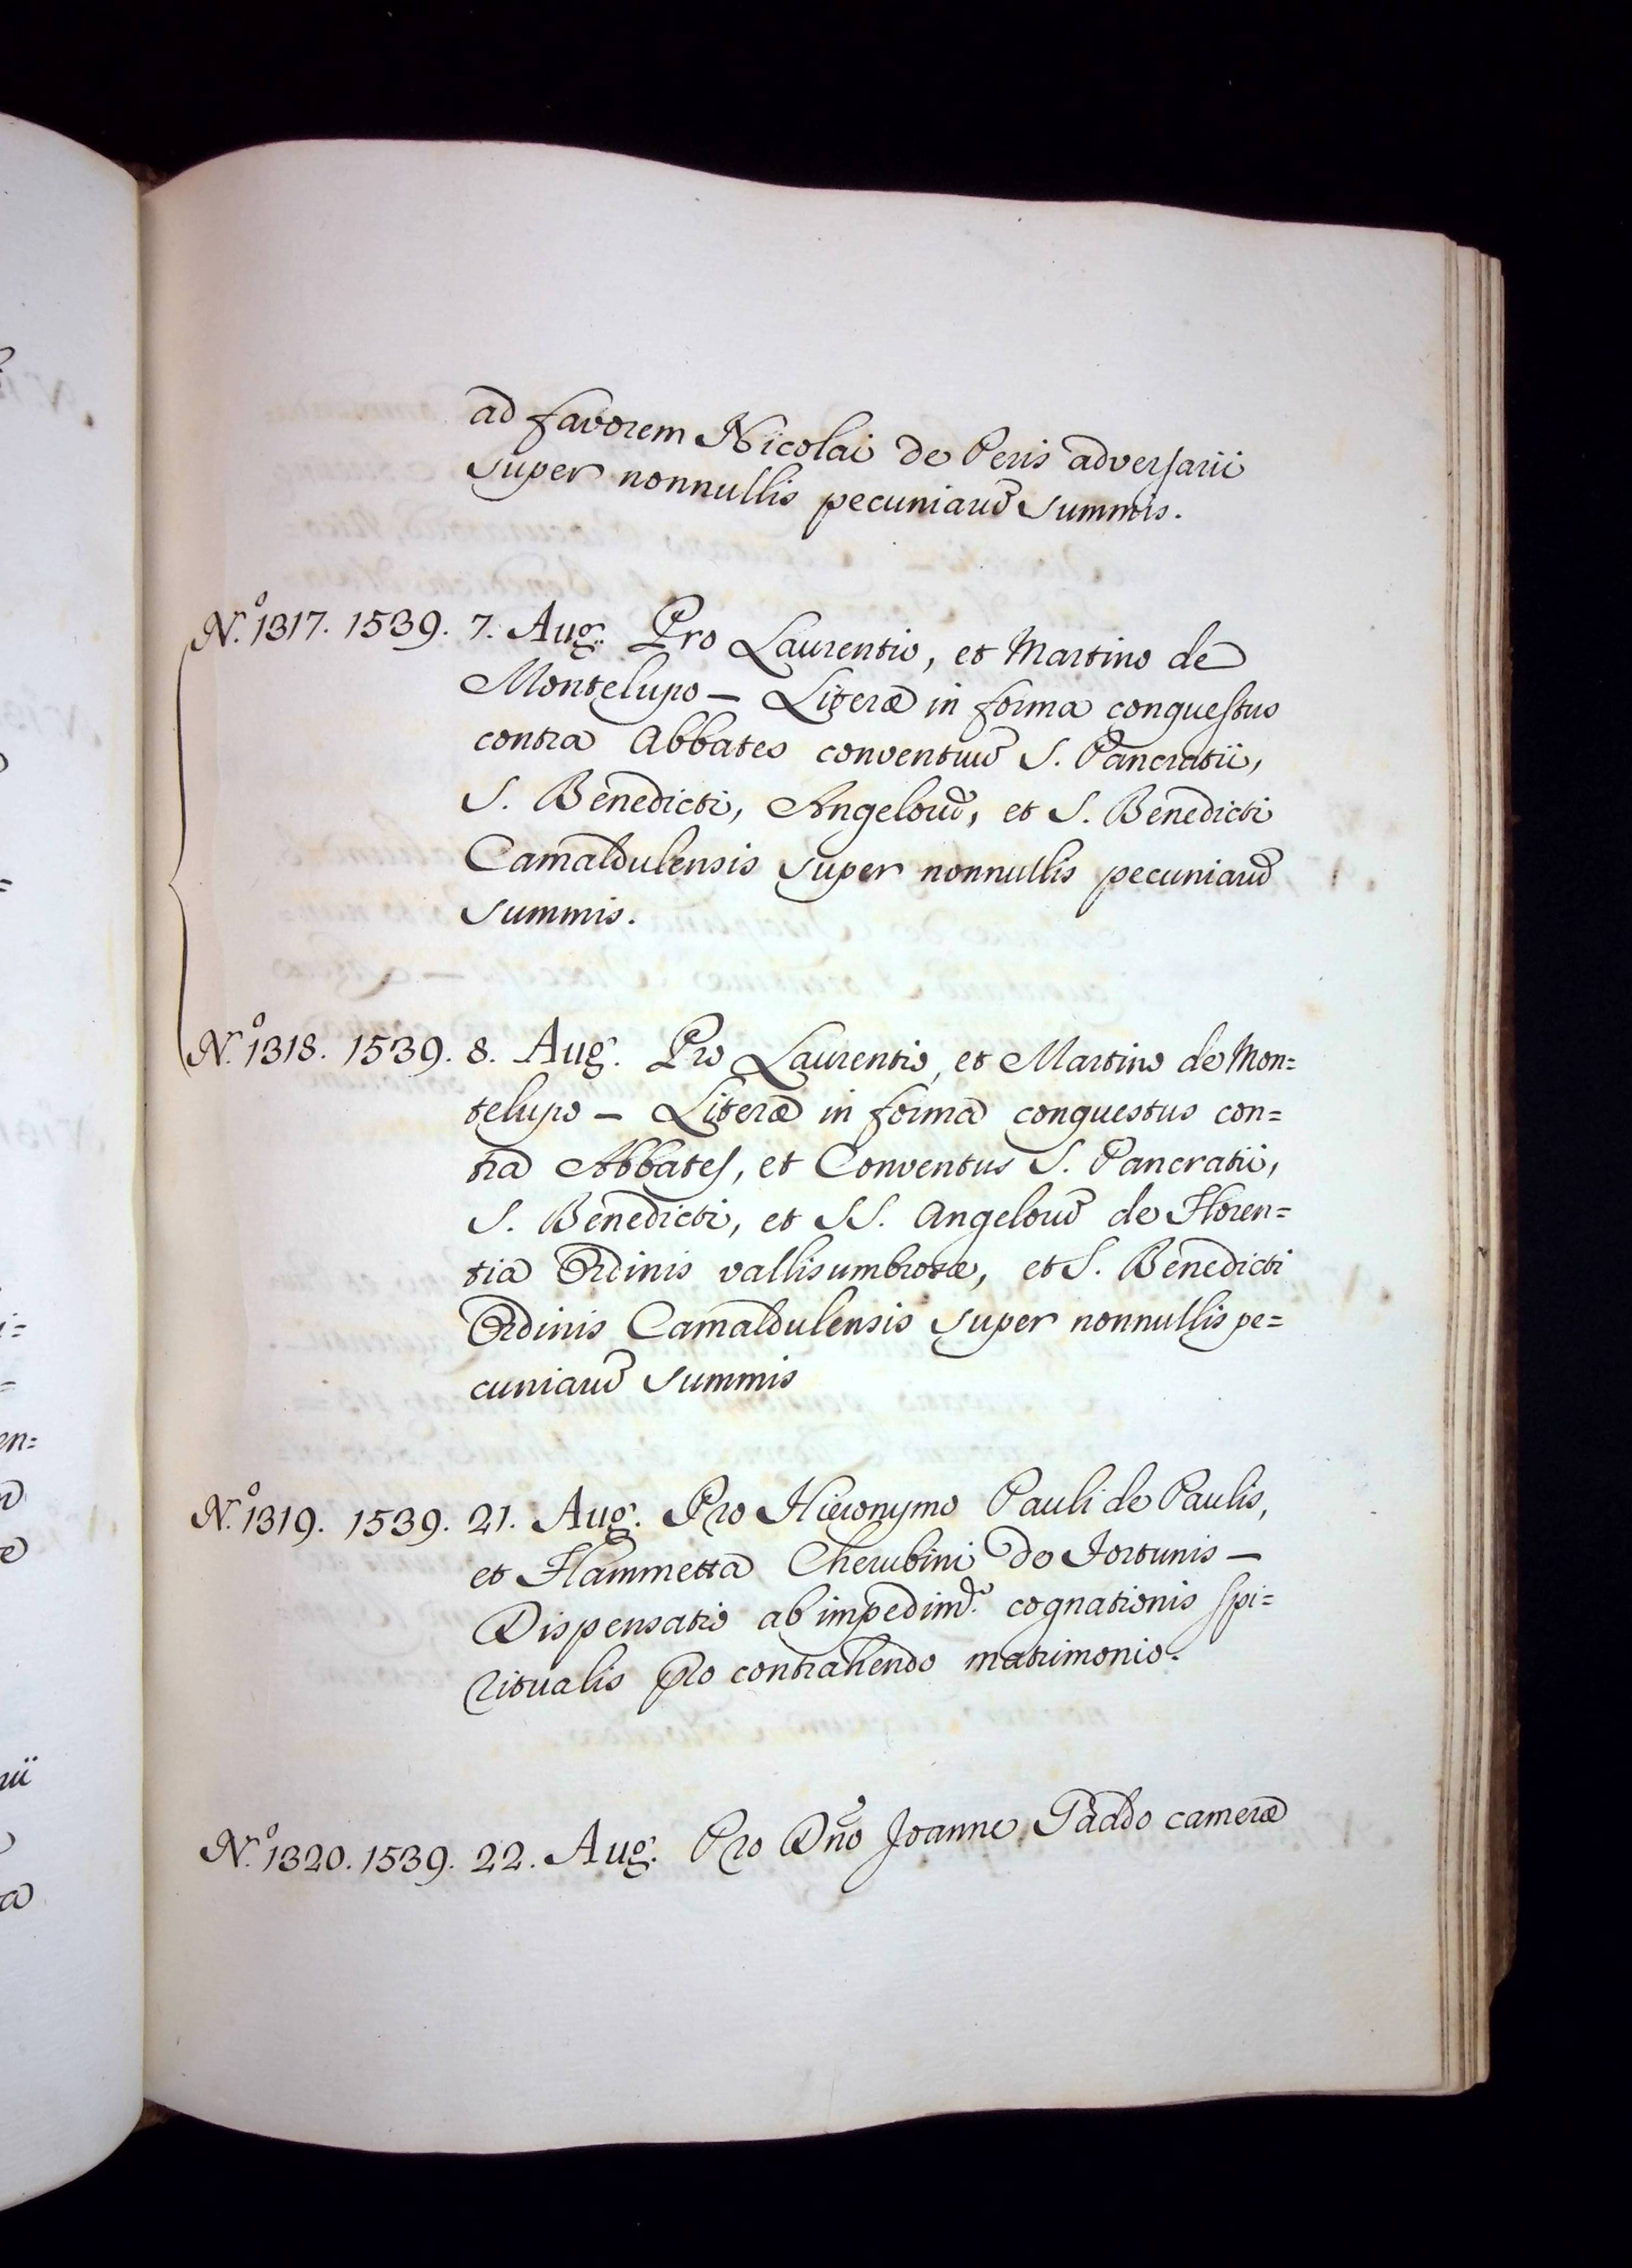 ad favorem Nicolai de Peris adversarii
super nonnullis pecuniaru͂ summis.
N.º 1317. 1539. 7. Aug. Pro Laurentio, et Martino de
Montelupo — Literæ in forma conquestus
contra Abbates conventuu͂ S. Pancratii,
S. Benedicti, Angeloru͂, et S. Benedicti
Camaldulensis super nonnullis pecuniaru͂
summis.
N.º 1318. 1539. 8. Aug. Pro Laurentio, et Martino de Mon=
telupo — Literæ in forma conquestus con=
tra Abbates, et Conventus S. Pancratii,
S. Benedicti, et SS. Angeloru͂ de Floren=
tia Ordinis vallisumbrosæ, et S. Benedicti
Ordinis Camaldulensis super nonnullis pe=
cuniaru͂ summis
N.º 1319. 1539. 21. Aug. Pro Hieronymo Pauli de Paulis,
et Flammetta Cherubini de Fortunis —
Dispensatio ab impedim.º cognationis spi=
ritualis pro contrahendo matrimonio.
N.º 1320. 1539. 22. Aug. Pro Dño Joanne Taddo cameræ
en=